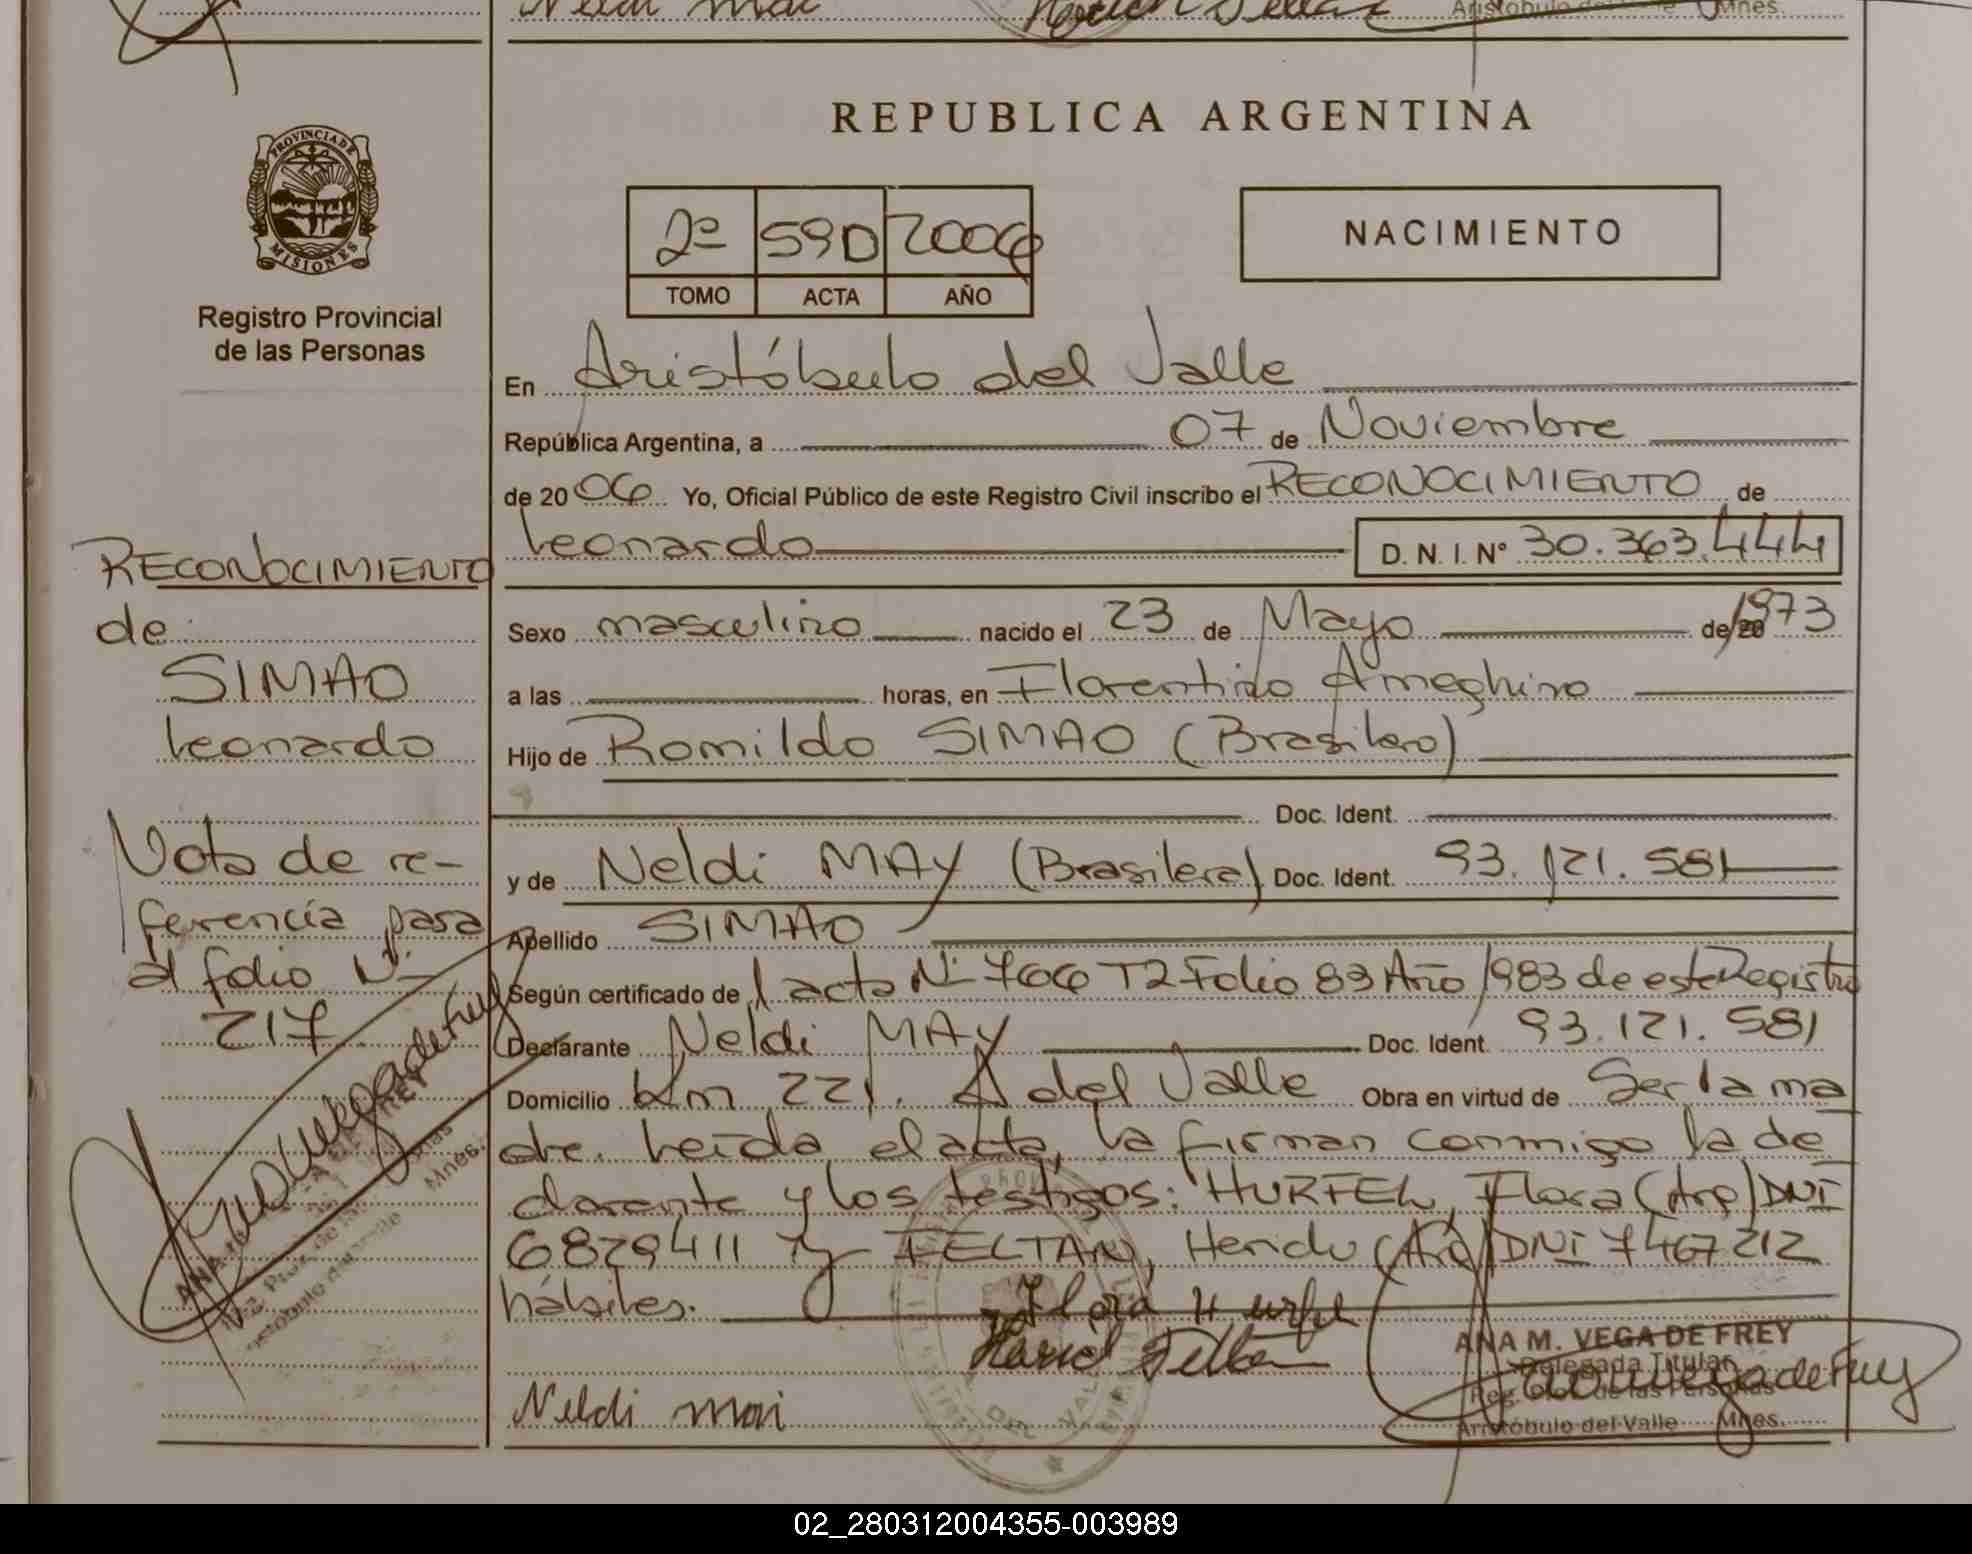 Neldi mai
Aristóbulo del Valle Mnes.
REPUBLICA ARGENTINA
PROVINCIA DE MISIONES
Registro Provincial
de las Personas
2º 590 2006
TOMO ACTA AÑO
NACIMIENTO
En Aristóbulo del Valle
República Argentina, a 07 de Noviembre
de 20 06 Yo, Oficial Público de este Registro Civil inscribo el RECONOCIMIENTO de
Leonardo D. N. I. Nº 30.363.444
Sexo masculino nacido el 23 de Mayo de 1973
a las horas, en Florentino Ameghino
Hijo de Romildo SIMAO (Brasilero)
Doc. Ident.
y de Neldi MAY (Brasilera) Doc. Ident. 93.121.581
Apellido SIMAO
Según certificado de l acta Nº 766 T2 Folio 83 Año 1983 de este Registro
Declarante Neldi MAY Doc. Ident. 93.121.581
Domicilio Km 221. A del Valle Obra en virtud de Ser la ma
dre. Leída el acta, la firman conmigo la de
clarante y los testigos: HURFEL, Flora (Arg) DNI
6829411 y FELTAN, Heridu (Arg) DNI 7467212
hábiles.
Flora Hurfel
Neldi mai
ANA M. VEGA DE FREY
Delegada Titular
Reg. Prov. de las Personas
Aristóbulo del Valle Mnes.
RECONOCIMIENTO
de
SIMAO
Leonardo
Nota de re-
ferencia para
al folio Nº
217.
02_280312004355-003989